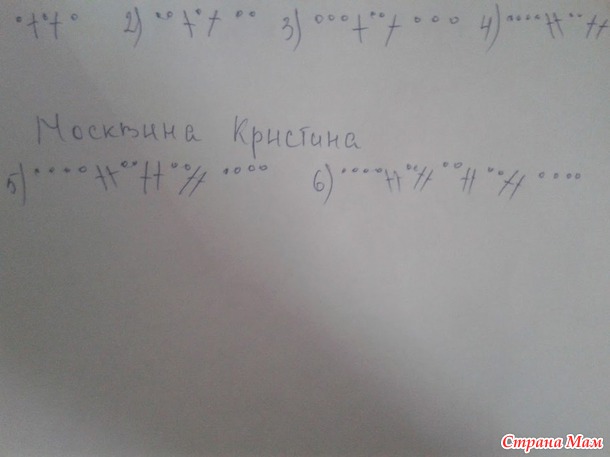 2) 3) 4)
Москвина Кристина
5) 6)
Страна Мам